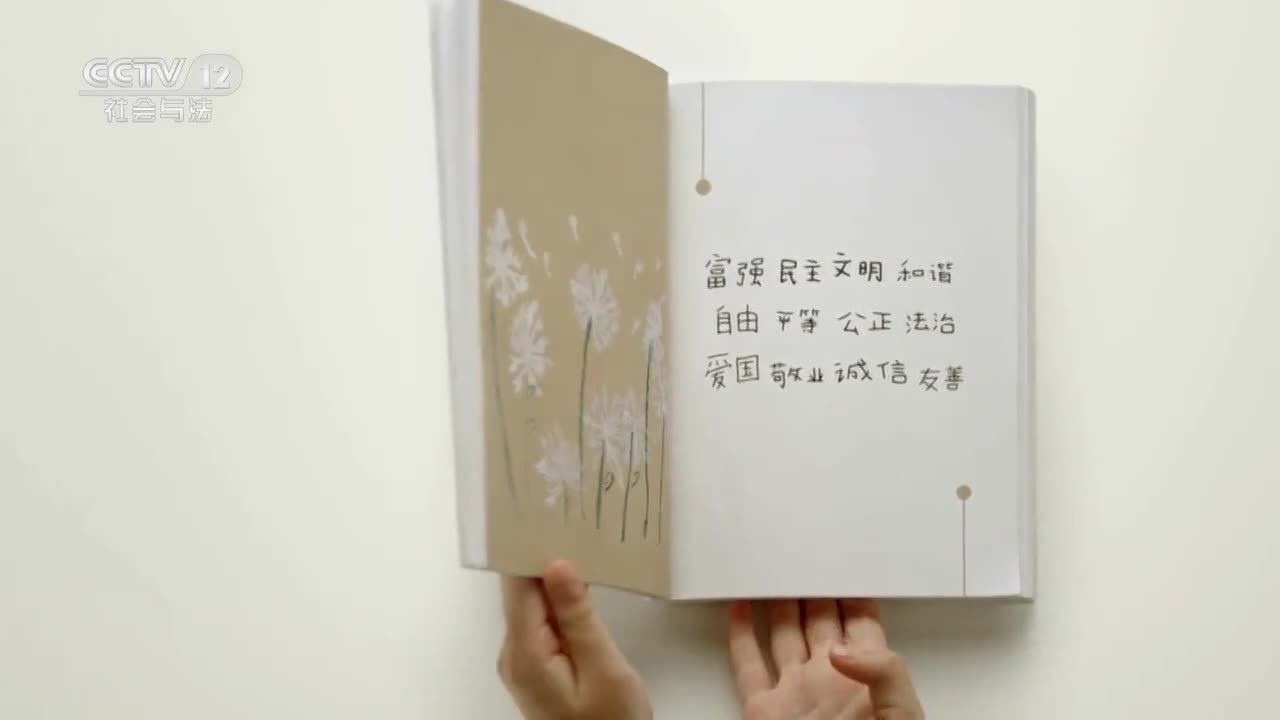 CCTV 12
社会与法
富强 民主 文明 和谐
自由 平等 公正 法治
爱国 敬业 诚信 友善